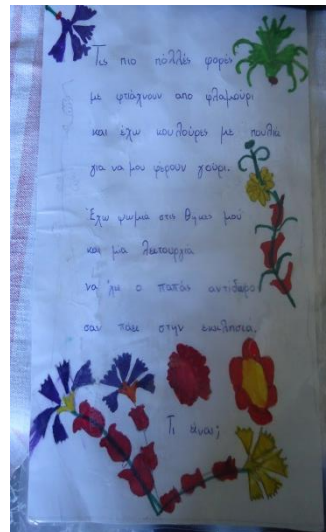 Τις πιο πολλές φορές
με φτιάχνουν απο φλαμούρι
και έχω κουλούρες με πουλιά
για να μου φέρουν γούρι.
Έχω ψωμιά στις θήκες μου
και μια λειτουργιά
να 'χει ο παπάς αντίδωρο
σαν πάει στην εκκλησιά.
Τι είναι;